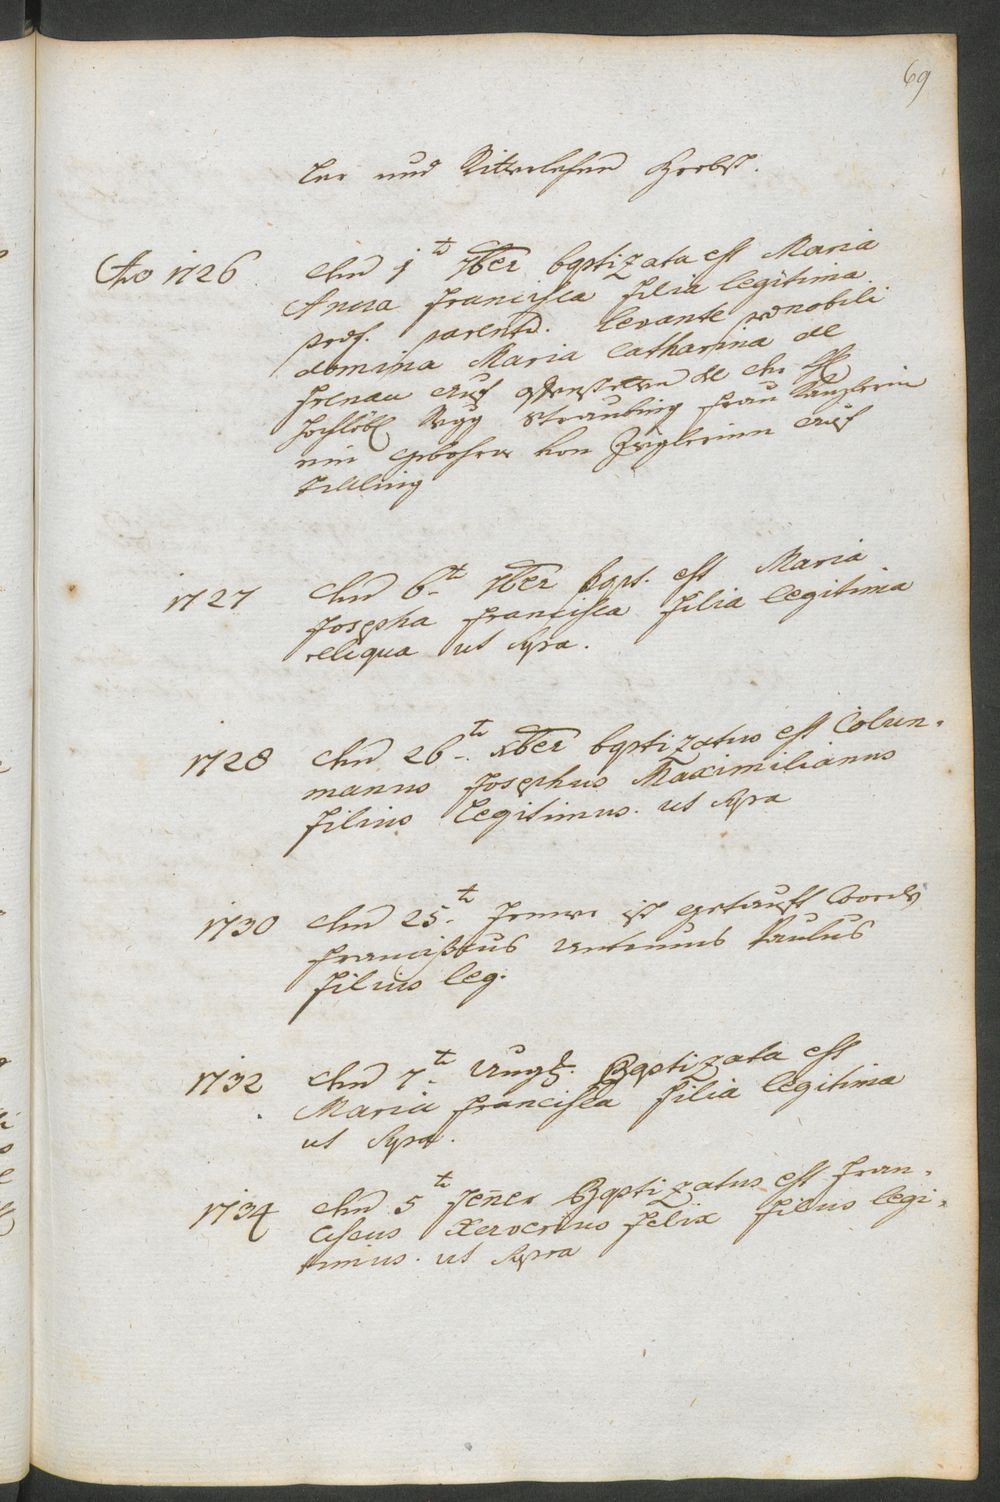 69
und Ritterlehen Probst.
Ao 1726 den 1t 7ber baptizata est Maria
Anna Francisca filia legitima
praef. parentu. levante praenobili
domina Maria Catharina de
auf
hochlöbl Regg Straubing Frau Kanzlerin
gebohrne von auf
1727 den 6t 7ber bapt. est Maria
Josepha Francisca filia legitima
reliqua ut supra.
1728 den 26t xber baptizatus est Colum-
manus Josephus Maximilianus
filius legitimus. ut supra
1730 den 25t ist getauft worden
Franciscus Antonius Paulus
filius leg.
1732 den 7t Augt. Baptizata est
Maria Francisca filia legitima
ut supra.
1734 den 5t Jener Baptizatus est Fran-
ciscus Xaverius Felix filius legi-
timus. ut supra